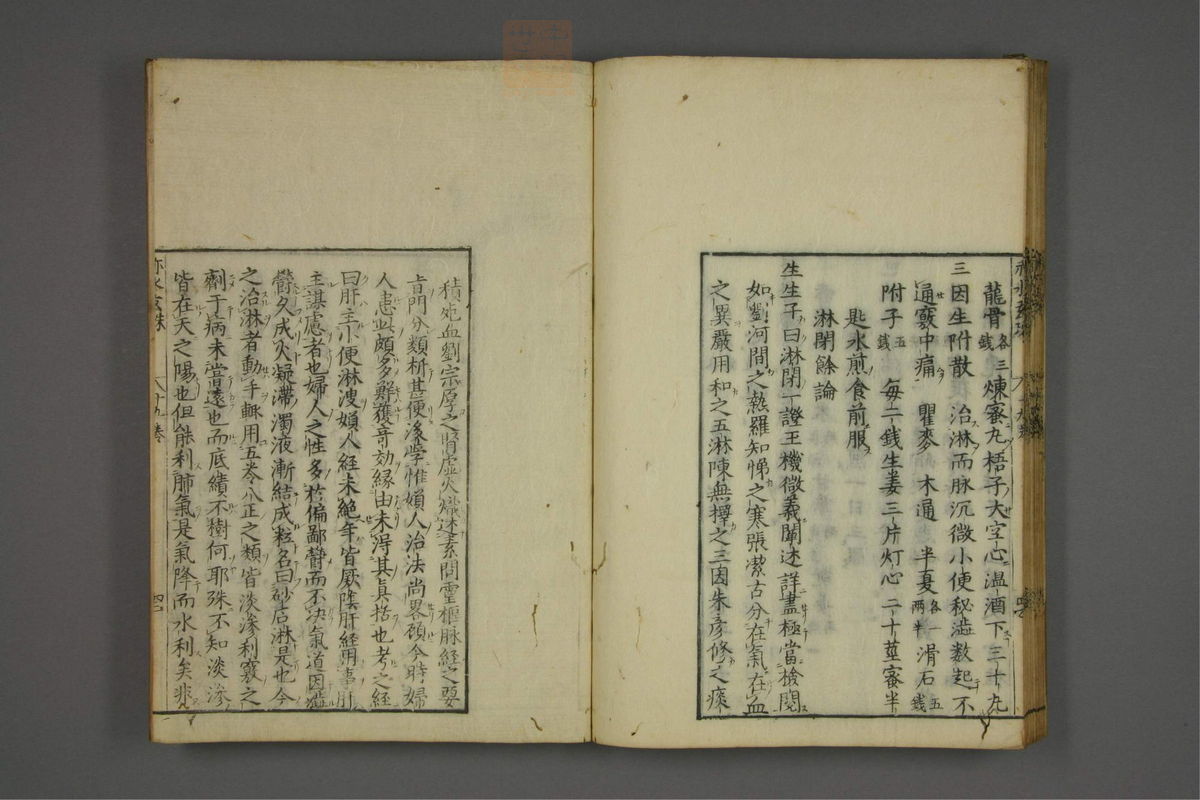 龍骨各三錢煉蜜丸梧子大空心温酒下三十丸
三因生附散 治淋而脉沉微小便秘澁数起不
通竅中痛 瞿麥 木通 半夏各一兩半滑石五錢
附子五錢 毎二錢生姜三片灯心二十莖蜜半
匙水煎食前服
淋閉餘論
生生子曰淋閉一證王機微義闡述詳盡極當檢閲
如劉河間之熱羅知悌之寒張潔古分在氣在血
之異嚴用和之五淋陳無擇之三因朱彦修之痰
積死血劉宗厚之腎虚火熾逑素問霊樞脉經之要
㫖門分類析甚便後學惟婦人治法尚畧頋今時婦
人患此頗多鮮獲竒効縁由未得其眞括也考之經
曰肝主小便淋溲婦人經未絶年皆厥陰肝經用事肝
主謀慮者也婦人之性多扵偏鄙欝而不决氣道因澁
欝久成火凝滯濁液漸結成粒名曰砂石淋是也今
之治淋者動手輙用五苓八正之類皆淡滲利竅之
劑于病未嘗遠也而底績不樹何耶殊不知淡滲
皆在天之陽也但能利肺氣是氣降而水利矣非
赤水玄珠 十九巻